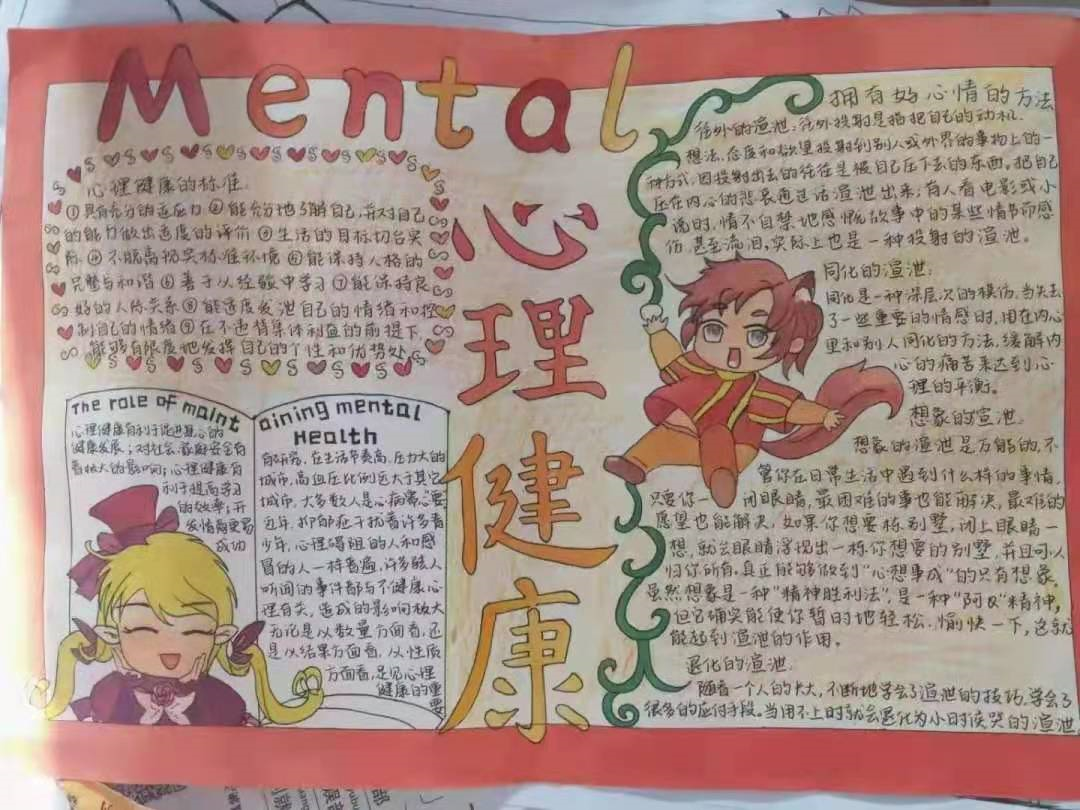 Mental
心理健康
心理健康的标准:
①具有充分的适应力②能充分地了解自己,并对自己
的能力做出适度的评价③生活的目标切合实
际④不脱离现实标准环境⑤能保持人格的
完整与和谐⑥善于以经验中学习⑦能保持良
好的人际关系⑧能适度发泄自己的情绪和控
制自己的情绪⑨在不违背集体利益的前提下,
能够有限度地发挥自己的个性和优势处
The role of maint
心理健康有利于促进身心的
健康发展;对社会、家庭安全有
着极大的影响;心理健康有
利于提高学习
的效率;开
发情商更易
成功
aining mental
Health
有研究,在生活节奏高,压力大的
城市,高血压比例远大于其它
城市,大多数人是心病需心要
近年,抑郁症干扰着许多青
少年,心理碍阻的人和感
冒的人一样普遍,许多骇人
听闻的事件都与不健康心
理有关,造成的影响极大
无论是以数量方面看,还
是以结果方面看,以性质
方面看,足见心理
健康的重
要
拥有好心情的方法
往外的渲泄:往外投射是指把自己的动机、
想法、态度和欲望投射到别人或外界的事物上的一
种方式,因投射出去的往往是被自己压下去的东西。把自己
压在内心的悲哀通过话渲泄出来;有人看电影或小
说时,情不自禁地感慨故事中的某些情节而感
伤甚至流泪,实际上也是一种投射的渲泄。
同化的渲泄:
同化是一种深层次的模仿,当失去
了一些重要的情感时,用在内心
里和别人同化的方法,缓解内
心的痛苦来达到心
理的平衡。
想象的宣泄.
想象的渲泄是万能的,不
管你在日常生活中遇到什么样的事情,
只要你一闭眼睛,最困难的事也能解决,最难的
愿望也能解决,如果你想要栋别墅,闭上眼睛一
想,就会眼睛浮现出一栋你想要的别墅,并且可以
归你所有,真正能够做到"心想事成"的只有想象,
虽然想象是一种"精神胜利法",是一种"阿Q"精神,
但它确实能使你暂时地轻松、愉快一下,这就
能起到渲泄的作用。
退化的渲泄.
随着一个人的大大,不断地学会了渲泄的技巧,学会了
很多的应付手段。当用不上时就会退化为小时候哭的渲泄